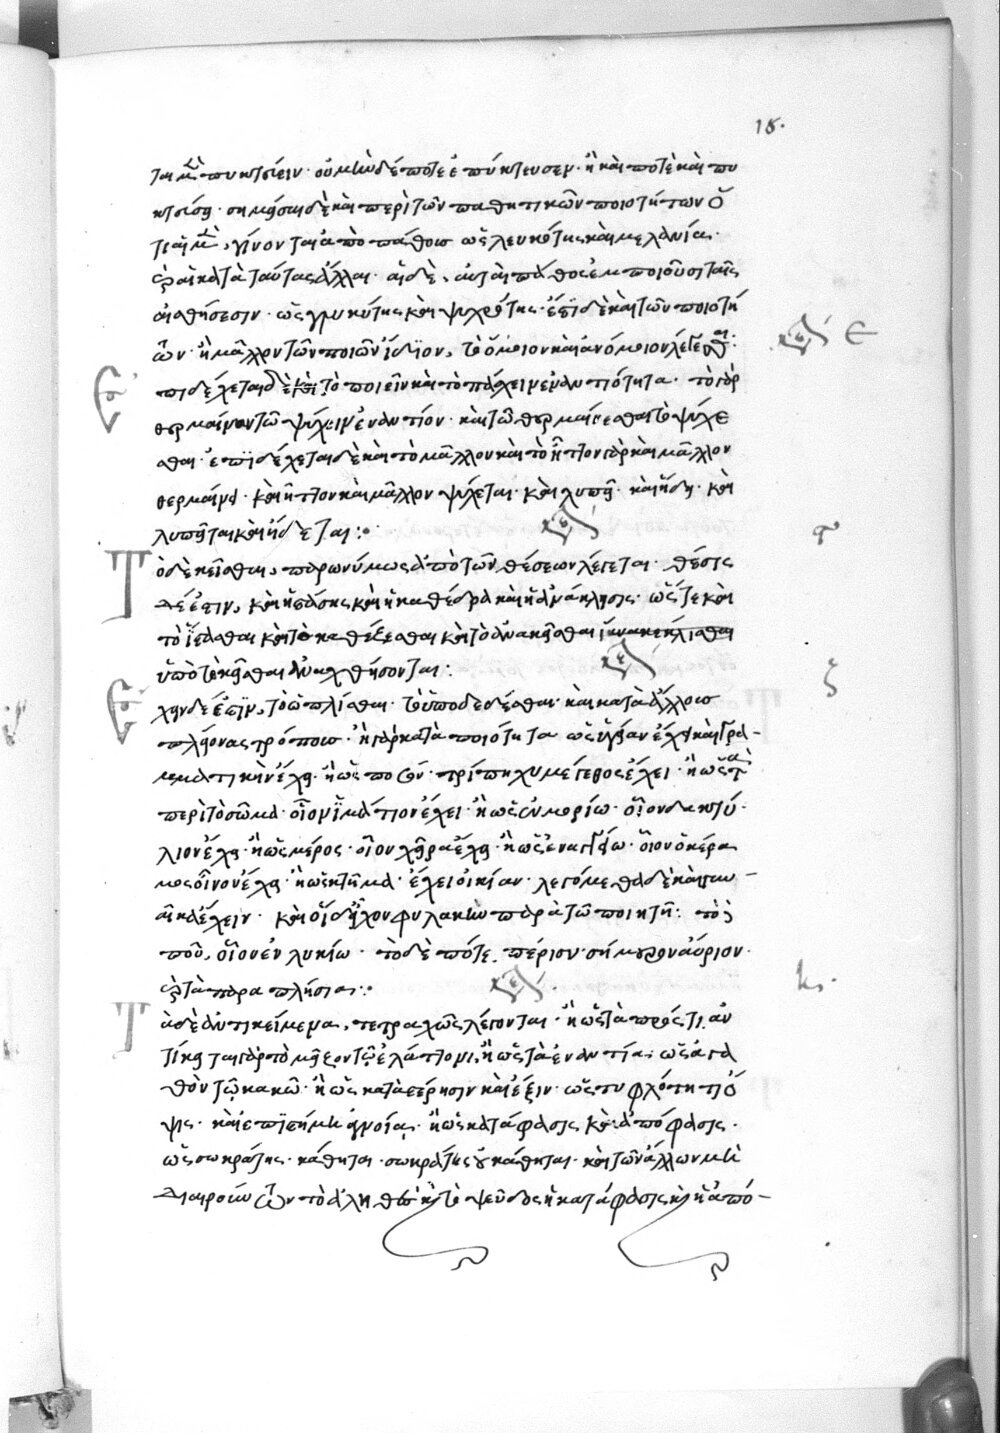 15.
ται μὲν πυκτεύειν· οὐ μὴν δέ ποτε ἐπύκτευσεν· ἢ καὶ ποτὲ καὶ πυ
κτεύσει· σημείωσαι δὲ καὶ περὶ τῶν παθητικῶν ποιοτήτων ὅ
τι αἱ μὲν, γίνονται ἀπὸ πάθους ὡς λευκότης καὶ μελανία·
καὶ αἱ κατὰ ταύτας ἄλλαι· αἱ δὲ, αὐταὶ πάθος ἐμποιοῦσι ταῖς
αἰσθήσεσιν· ὡς γλυκύτης καὶ ψυχρότης· ἔστι δὲ καὶ τῶν ποιοτή
των· ἢ μᾶλλον τῶν ποιῶν ἴδιον, τὸ ὅμοιον καὶ ἀνόμοιον λέγεσθαι:
ε
Ἐπιδέχεται δὲ καὶ τὸ ποιεῖν καὶ τὸ πάσχειν ἐναντιότητα· τὸ γὰρ
θερμαίνειν τῷ ψύχειν ἐναντίον· καὶ τῷ θερμαίνεσθαι τὸ ψύχε
σθαι· ἐπιδέχεται δὲ καὶ τὸ μᾶλλον καὶ τὸ ἧττον γὰρ καὶ μᾶλλον
θερμαίνει· καὶ ἧττον καὶ μᾶλλον ψύχεται· καὶ λυπεῖ· καὶ ἥδει· καὶ
λυπεῖται καὶ ἥδεται:
Τὸ δὲ κεῖσθαι, παρωνύμως ἀπὸ τῶν θέσεων λέγεται· θέσις
δέ ἐστιν, καὶ ἡ στάσις καὶ ἡ καθέδρα καὶ ἡ ἀνάκλησις· ὥστε καὶ
τὸ ἵστασθαι καὶ τὸ καθέζεσθαι καὶ τὸ ἀνακεῖσθαι
ὑπὸ τὸ κεῖσθαι ἀναχθήσονται:
ζ
Ἔχειν δέ ἐστιν, τὸ ὡπλίσθαι· τὸ ὑποδεδέσθαι· καὶ κατὰ ἄλλους
πλείονας τρόπους· ἢ γὰρ κατὰ ποιότητα ὡς ὑγείαν ἔχει καὶ γρα-
μματικὴν ἔχει· ἢ ὡς ποσόν· τρίπηχυ μέγεθος ἔχει· ἢ ὡς τὰ
περὶ τὸ σῶμα· οἷον ἱμάτιον ἔχει· ἢ ὡς ἐν μορίῳ· οἷον δακτύ-
λιον ἔχει· ἢ ὡς μέρος· οἷον χεῖρα ἔχει· ἢ ὡς ἐν ἀγγείῳ· οἷον ὁ κέρα
μος οἶνον ἔχει· ἢ ὡς κτῆμα· ἔχει οἰκίαν· λεγόμεθα δὲ καὶ γυν-
αῖκα ἔχειν· παρὰ τῷ ποιητῇ: τὸ δὲ
ποῦ, οἷον ἐν λυκίῳ· τὸ δὲ πότε, πέρισυ· σήμερον αὔριον·
καὶ τὰ παραπλήσια:
η.
Τὰ δὲ ἀντικείμενα, τετραχῶς λέγονται· ἢ ὡς τὰ πρός τι· ἀν
τίκειται γὰρ τὸ μεῖζον τῷ ἐλάττονι, ἢ ὡς τὰ ἐναντία· ὡς ἀγα
θὸν τῷ κακῷ· ἢ ὡς κατὰ στέρησιν καὶ ἕξιν· ὡς τυφλότητι ὄ
ψις· καὶ ἐπιστήμη ἀγνοίᾳ· ἢ ὡς κατάφασις καὶ ἀπόφασις·
ὡς σωκράτης· κάθηται· σωκράτης οὐ κάθηται· καὶ τῶν ἄλλων μὴ
διαιρούντων τὸ ἀληθὲς καὶ τὸ ψεῦδος ἡ κατάφασις καὶ ἡ ἀπό-